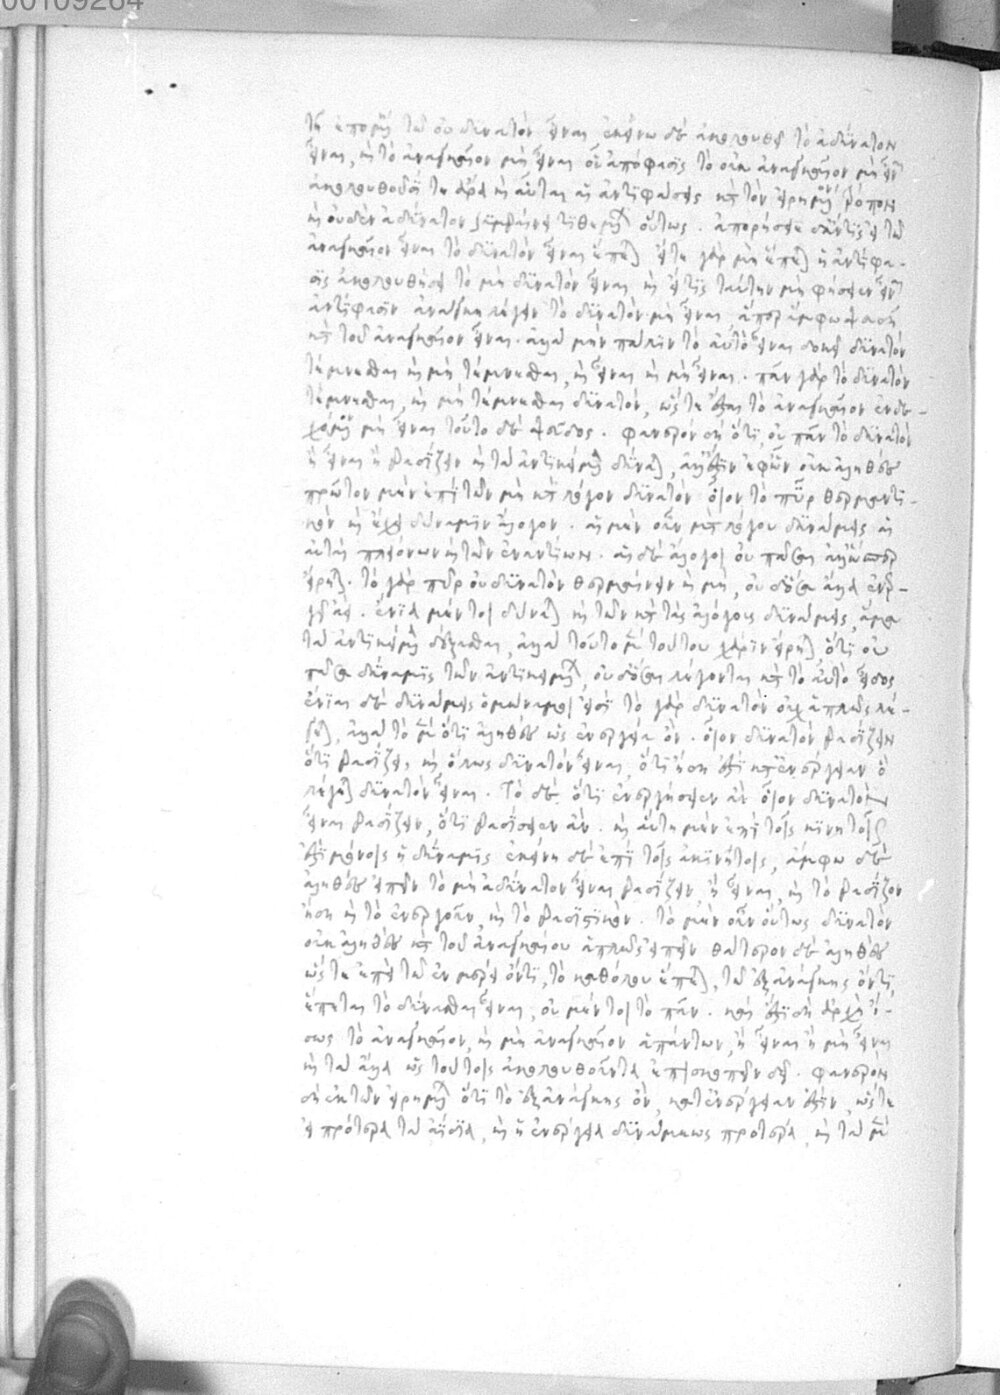 00109264
τῶ ἑπομένω τῶ οὐ δυνατὸν εἶναι ἐκείνω δὲ ἀκολουθεῖ τὸ ἀδύνατον
εἶναι, καὶ τὸ ἀναγκαῖον μὴ εἶναι οὗ ἀπόφασις τὸ οὐκ ἀναγκαῖον μὴ εἶναι
ἀκολουθοῦσί τε ἄρα καὶ αὗται αἱ ἀντιφάσεις κατὰ τὸν εἰρημένον τρόπον
καὶ οὐδὲν ἀδύνατον συμβαίνει τιθεμένων οὕτως. ἀπορήσειε δ' ἄν τις εἰ τῶ
ἀναγκαῖον εἶναι τὸ δυνατὸν εἶναι ἕπεται εἴτε γὰρ μὴ ἕπεται ἡ ἀντίφα-
σις ἀκολουθήσει τὸ μὴ δυνατὸν εἶναι καὶ εἴ τις ταύτην μὴ φήσειεν εἶναι
ἀντίφασιν ἀνάγκη λέγειν τὸ δυνατὸν μὴ εἶναι ἅπερ ἄμφω ψευδῆ
κατὰ τοῦ ἀναγκαῖον εἶναι. ἀλλὰ μὴν πάλιν τὸ αὐτὸ εἶναι δοκεῖ δυνατὸν
τέμνεσθαι καὶ μὴ τέμνεσθαι, καὶ εἶναι καὶ μὴ εἶναι. πᾶν γὰρ τὸ δυνατὸν
τέμνεσθαι, καὶ μὴ τέμνεσθαι δυνατὸν, ὥστε ἔσται τὸ ἀναγκαῖον ἐνδε-
χόμενον μὴ εἶναι τοῦτο δὲ ψεῦδος. φανερὸν δὴ ὅτι οὐ πᾶν τὸ δυνατὸν
ἢ εἶναι ἢ βαδίζειν καὶ τὰ ἀντικείμενα δύναται, ἀλλ' ἔστιν ἐφ' ὧν οὐκ ἀληθὲς
πρῶτον μὲν ἐπὶ τῶν μὴ κατὰ λόγον δυνατῶν οἷον τὸ πῦρ θερμαντι-
κὸν καὶ ἔχει δύναμιν ἄλογον. αἱ μὲν οὖν μετὰ λόγου δυνάμεις αἱ
αὐταὶ πλειόνων καὶ τῶν ἐναντίων. αἱ δὲ ἄλογοι οὐ πᾶσαι ἀλλ' ὥσπερ
εἴρηται. τὸ γὰρ πῦρ οὐ δυνατὸν θερμαίνειν καὶ μὴ, οὐδ' ὅσα ἄλλα ἐνερ-
γεῖ ἀεί. ἔνια μέντοι δύναται καὶ τῶν κατὰ τὰς ἀλόγους δυνάμεις, ἅμα
τὰ ἀντικείμενα δέξασθαι, ἀλλὰ τοῦτο μὲν τούτου χάριν εἴρηται ὅτι οὐ
πᾶσα δύναμις τῶν ἀντικειμένων, οὐδ' ὅσαι λέγονται κατὰ τὸ αὐτὸ εἶδος
ἔνιαι δὲ δυνάμεις ὁμώνυμοί εἰσι τὸ γὰρ δυνατὸν οὐχ ἁπλῶς λέ-
γεται, ἀλλὰ τὸ μὲν ὅτι ἀληθὲς ὡς ἐνεργεία ὂν. οἷον δυνατὸν βαδίζειν
ὅτι βαδίζει, καὶ ὅλως δυνατὸν εἶναι, ὅτι ἤδη ἐστὶ κατ' ἐνέργειαν ὃ
λέγεται δυνατὸν εἶναι. Τὸ δὲ ὅτι ἐνεργήσειεν ἂν οἷον δυνατὸν
εἶναι βαδίζειν, ὅτι βαδίσειεν ἄν. καὶ αὕτη μὲν ἐπὶ τοῖς κινητοῖς
ἐστὶ μόνοις ἡ δύναμις ἐκείνη δὲ ἐπὶ τοῖς ἀκινήτοις, ἄμφω δὲ
ἀληθὲς εἰπεῖν τὸ μὴ ἀδύνατον εἶναι βαδίζειν, ἢ εἶναι, καὶ τὸ βαδίζον
ἤδη καὶ τὸ ἐνεργοῦν, καὶ τὸ βαδιστικόν. τὸ μὲν οὖν οὕτως δυνατὸν
οὐκ ἀληθὲς κατὰ τοῦ ἀναγκαίου ἁπλῶς εἰπεῖν θάτερον δὲ ἀληθὲς
ὥστε ἐπεὶ τῶ ἐν μέρει ὄντι, τὸ καθόλου ἕπεται, τῶ ἐξ ἀνάγκης ὄντι
ἕπεται τὸ δύνασθαι εἶναι, οὐ μέντοι τὸ πᾶν. καὶ ἔστι δὴ ἀρχὴ ἴ-
σως τὸ ἀναγκαῖον, καὶ μὴ ἀναγκαῖον ἁπάντων, ἢ εἶναι ἢ μὴ εἶναι
καὶ τὰ ἄλλα ὡς τούτοις ἀκολουθοῦντα ἐπισκοπεῖν δεῖ. φανερὸν
δὴ ἐκ τῶν εἰρημένων ὅτι τὸ ἐξ ἀνάγκης ὂν, κατ' ἐνέργειαν ἐστὶν, ὥστε
εἰ πρότερα τὰ ἀΐδια, καὶ ἡ ἐνέργεια δυνάμεως προτέρα, καὶ τὰ μὲν